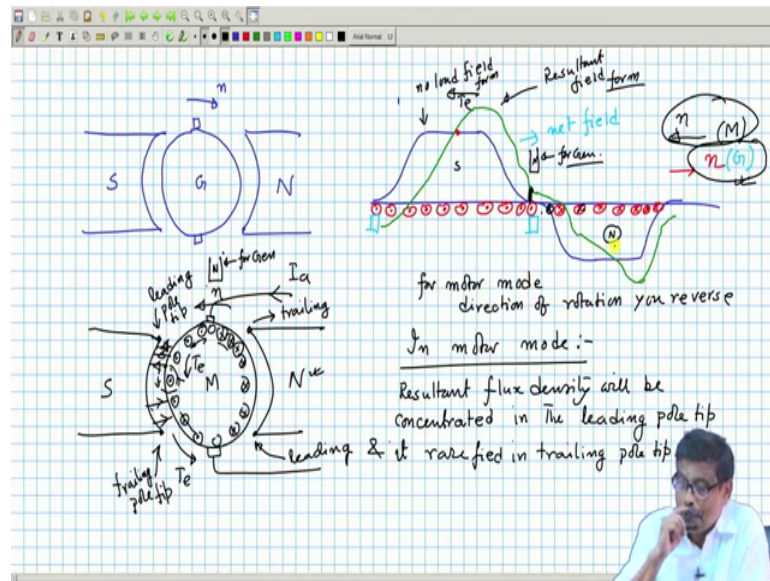 Arial Normal 12
n
S
G
N
no load field form
Te
Resultant field form
net field
N for Gen.
S
N
n (M)
n (G)
N for Gen
n
Ia
leading pole tip
trailing
S
Te
M
N
trailing pole tip
Te
leading
for motor mode
direction of rotation you reverse
In motor mode :-
Resultant flux density will be
concentrated in the leading pole tip
& it rarefied in trailing pole tip